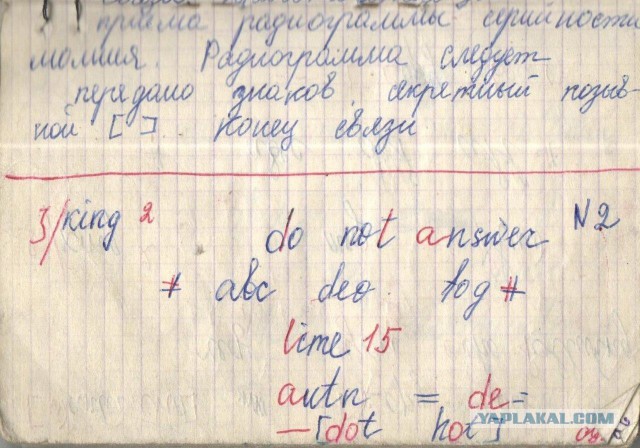 приёма радиограммы серийности
молния. Радиограмма следует
передано знаков, секретный позыв-
ной [ ]. Конец связи
3/king 2
do not answer N2
# abc deo fog #
time 15
autn = de =
— [dot hot]
YAPLAKAL.COM